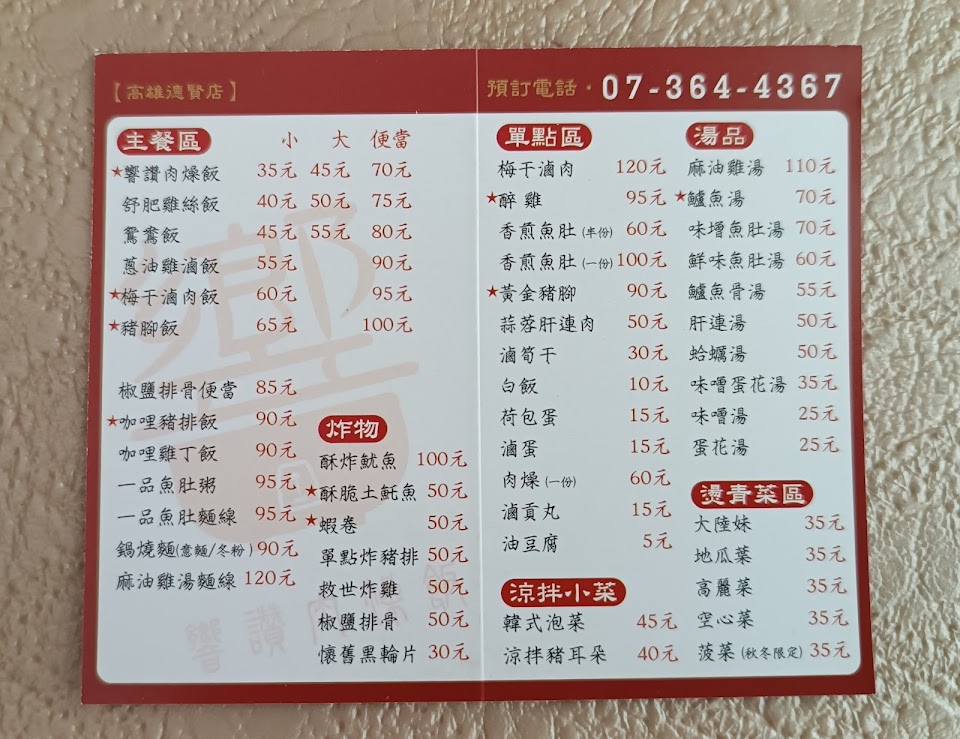 【高雄德賢店】
預訂電話·07-364-4367
主餐區 小 大 便當
★響讚肉燥飯 35元 45元 70元
舒肥雞絲飯 40元 50元 75元
鴛鴦飯 45元 55元 80元
蔥油雞滷飯 55元 90元
★梅干滷肉飯 60元 95元
★豬腳飯 65元 100元
椒鹽排骨便當 85元
★咖哩豬排飯 90元
咖哩雞丁飯 90元
一品魚肚粥 95元
一品魚肚麵線 95元
鍋燒麵(意麵/冬粉) 90元
麻油雞湯麵線 120元
炸物
酥炸魷魚 100元
★酥脆土魠魚 50元
★蝦卷 50元
單點炸豬排 50元
救世炸雞 50元
椒鹽排骨 50元
懷舊黑輪片 30元
單點區
梅干滷肉 120元
★醉雞 95元
香煎魚肚(半份) 60元
香煎魚肚(一份) 100元
★黃金豬腳 90元
蒜蓉肝連肉 50元
滷筍干 30元
白飯 10元
荷包蛋 15元
滷蛋 15元
肉燥(一份) 60元
滷貢丸 15元
油豆腐 5元
涼拌小菜
韓式泡菜 45元
涼拌豬耳朵 40元
湯品
麻油雞湯 110元
★鱸魚湯 70元
味增魚肚湯 70元
鮮味魚肚湯 60元
鱸魚骨湯 55元
肝連湯 50元
蛤蠣湯 50元
味噌蛋花湯 35元
味噌湯 25元
蛋花湯 25元
燙青菜區
大陸妹 35元
地瓜菜 35元
高麗菜 35元
空心菜 35元
菠菜(秋冬限定) 35元
響讚肉燥飯